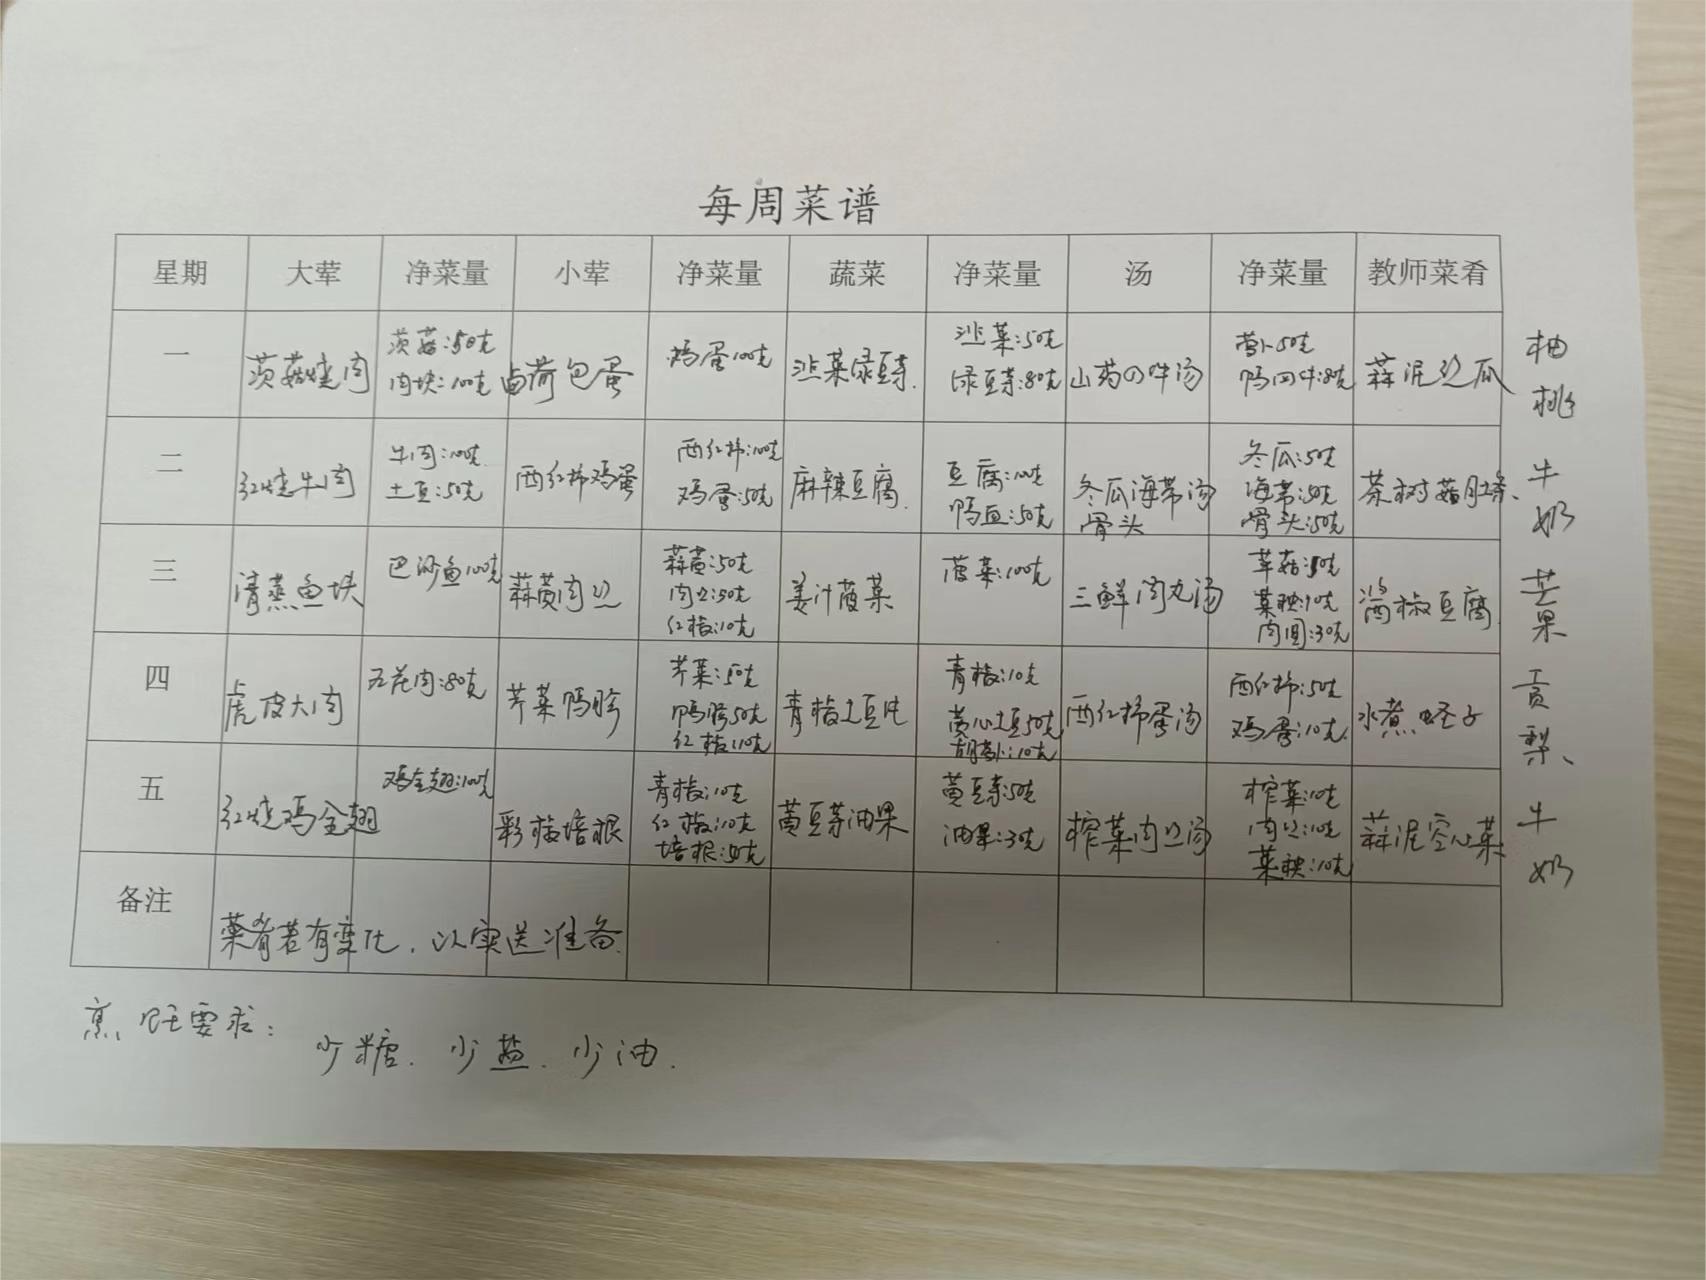 每周菜谱
星期 大荤 净菜量 小荤 净菜量 蔬菜 净菜量 汤 净菜量 教师菜肴
一 茨菇烧肉 茨菇:50克 肉块:100克 卤荷包蛋 鸡蛋100克 韭菜绿豆芽. 韭菜:50克 绿豆芽:80克 山药四件汤 萝卜50克 鸭四件:80克 蒜泥 瓜 柚 桃
二 红烧牛肉 牛肉:100克 土豆:50克 西红柿鸡蛋 西红柿:100克 鸡蛋:50克 麻辣豆腐. 豆腐:100克 鸭血:50克 冬瓜海带汤 骨头 冬瓜:50克 海带:50克 骨头:50克 茶树菇 牛奶
三 清蒸鱼块 巴沙鱼100克 蒜黄肉丝 蒜黄:50克 肉丝:50克 红椒:10克 姜汁菠菜 菠菜:100克 三鲜肉丸汤 草菇:50克 菜秧:10克 肉圆:30克 酱椒豆腐 芒果
四 虎皮大肉 五花肉:80克 芹菜鸭胗 芹菜:50克 鸭胗50克 红椒:10克 青椒土豆片 青椒:10克 黄心土豆50克 胡萝卜:10克 西红柿蛋汤 西红柿:50克 鸡蛋:10克 水煮蛏子 贡梨、
五 红烧鸡全翅 鸡全翅:100克 彩椒培根 青椒:10克 红椒:10克 培根:50克 黄豆芽油果 黄豆芽:50克 油果:30克 榨菜肉丝汤 榨菜:10克 肉丝:10克 菜秧:10克 蒜泥空心菜 牛奶
备注 菜肴若有变化,以实送准备.
烹饪要求:
少糖.少盐.少油.